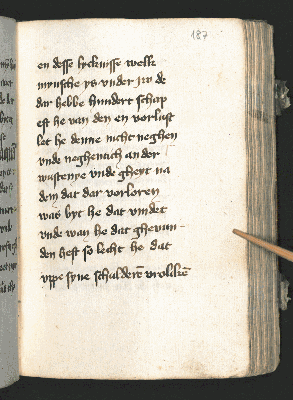 187
en desse lycknisse welk
mynsche ys vnder jw de
dar hebbe hundert schap
est he van den en vorlust
let he denne nicht neghen
vnde neghentich an der
wustenye vnde gheyt na
dem dat dar vorloren
was byt he dat vindet
vnde wan he dat ghevun-
den heft so lecht he dat
vppe syne schulderē vrolikē